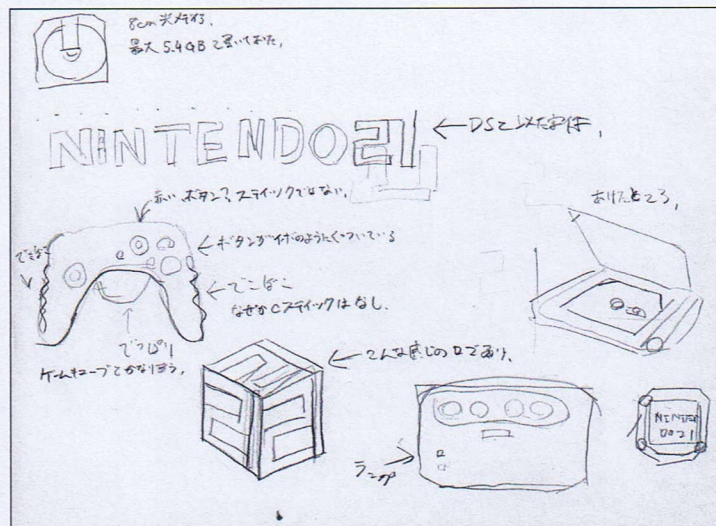 8cm 光メディア、
最大5.4GBと書いてあった。
NINTENDO21
←DSと似た字体、
赤いボタン？スティックではない。
あけたところ、
でこぼこ
←ボタンがイボのようにくっついている
←でこぼこ
なぜかCスティックはなし.
でっぱり
ゲームキューブとかなり違う。
←こんな感じのロゴあり、
ランプ
NINTEN
DO21